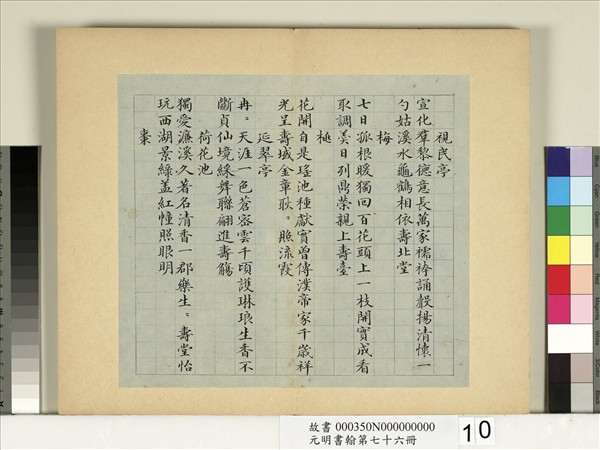 視民亭
宣化羣黎德意長萬家襦袴誦聲揚清懷一
勺姑溪水龜鶴相依壽北堂
梅
七日孤根暖獨回百花頭上一枝開實成看
取調羹日列鼎榮親上壽臺
桃
花開自是瑤池種獻實曾傳漢帝家千歲祥
光呈壽域金章耿〻照流霞
延翠亭
冉〻天涯一色蒼密雲千頃護琳琅生香不
斷貞仙境綵舞聯翩進壽觴
荷花池
獨愛濂溪久著名清香一郡藥生〻壽堂怡
玩西湖景綠蓋紅幢照眼明
棗
故書 000350N000000000
元明書翰第七十六冊
10